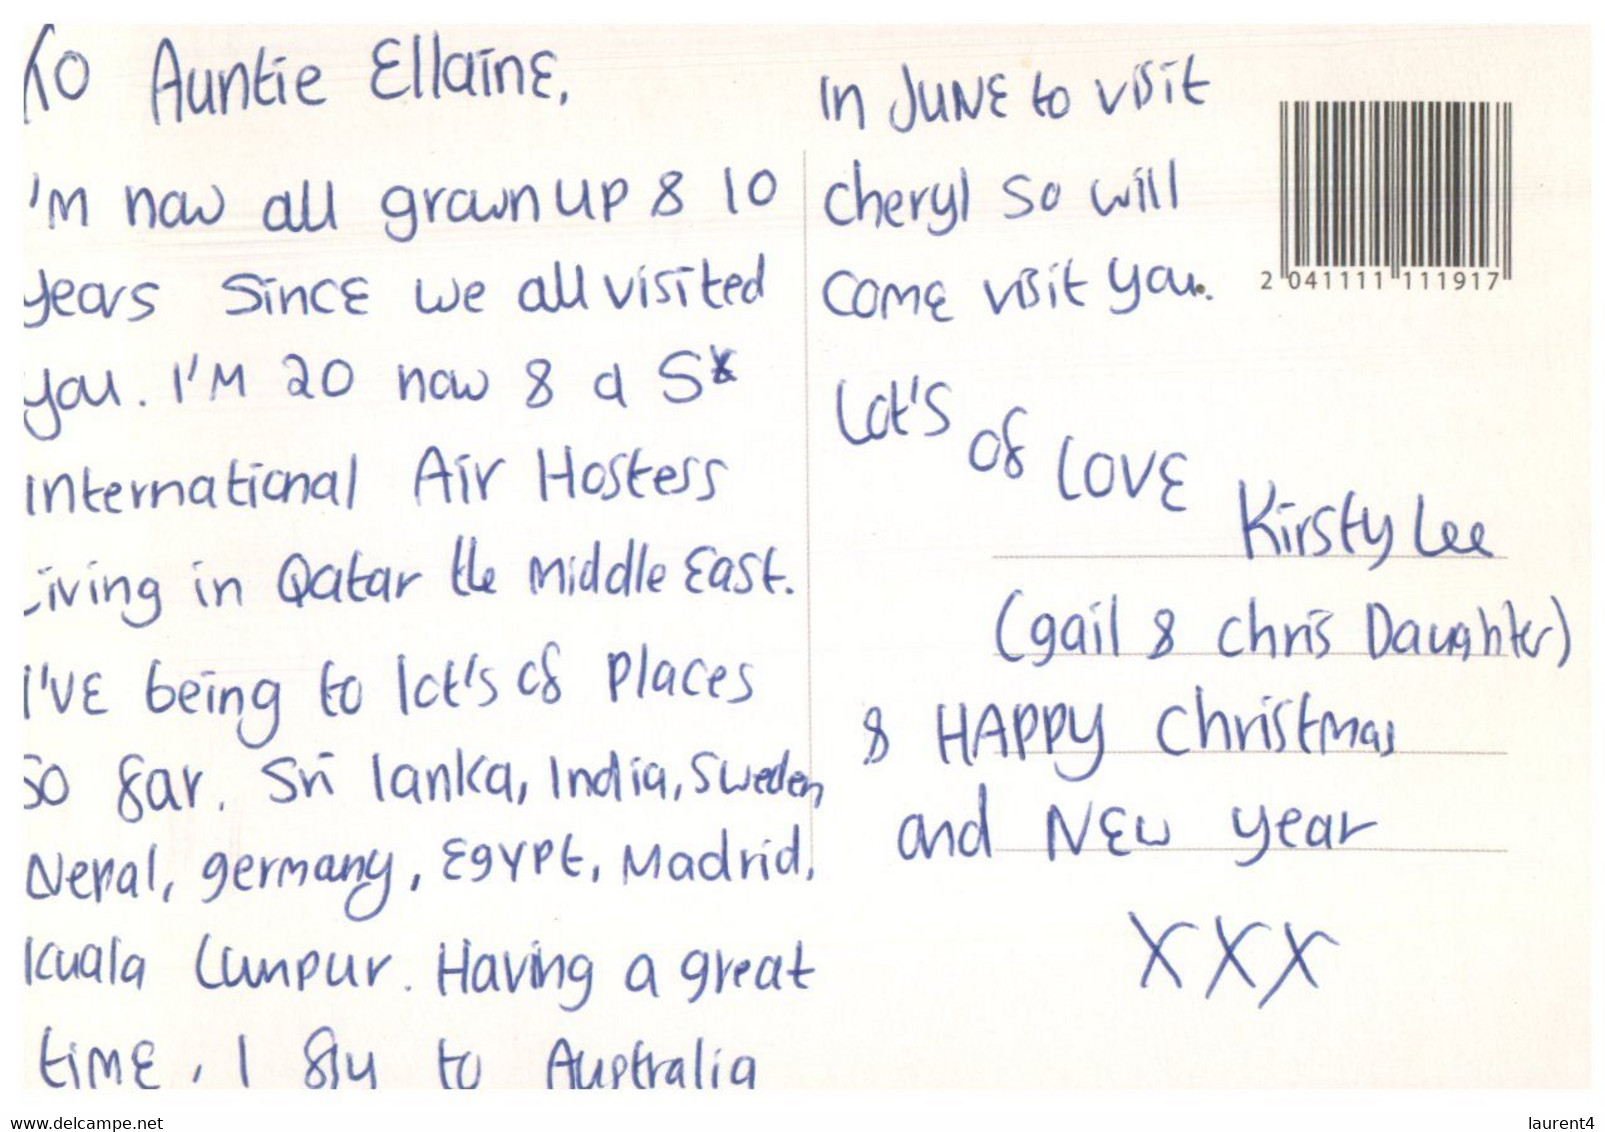 To Auntie Ellaine,
I'm now all grown up & 10
years since we all visited
you. I'M 20 now & a 5*
International Air Hostess
Living in Qatar the Middle East.
I'VE being to lot's of places
So far. Sri lanka, India, Sweden
Nepal, germany, Egypt, Madrid,
Kuala Lumpur. Having a great
time, I fly to Australia
in JUNE to visit
cheryl so will
come visit you.
Lot's of LOVE
Kirsty Lee
(gail & chris Daughter)
& HAPPY Christmas
and NEW year
XXX
2 041111 111917
www.delcampe.net
laurent4